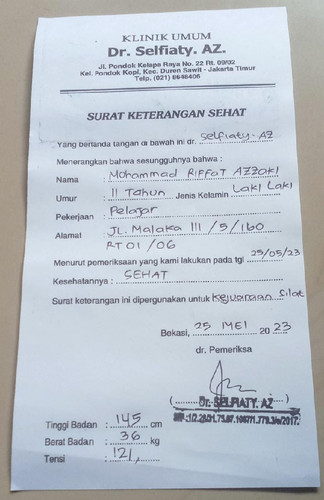 KLINIK UMUM
Dr. Selfiaty. AZ.
Jl. Pondok Kelapa Raya No. 22 Rt. 09/02
Kel. Pondok Kopi, Kec. Duren Sawit - Jakarta Timur
Telp. (021) 8646406
SURAT KETERANGAN SEHAT
Yang bertanda tangan di bawah ini dr. Selfiaty. AZ
Menerangkan bahwa sesungguhnya bahwa :
Nama : Mohammad RIFFAT AZZAKI
Umur : 11 Tahun Jenis Kelamin LAKI LAKI
Pekerjaan : Pelajar
Alamat : JL. Malaka III /5/160
RT 01 /06
Menurut pemeriksaan yang kami lakukan pada tgl 25/05/23
Kesehatannya : SEHAT
Surat keterangan ini dipergunakan untuk Kejuaraan Silat
Bekasi, 25 MEI 2023
dr. Pemeriksa
(Dr. SELFIATY. AZ)
Tinggi Badan : 145 cm
Berat Badan : 36 kg
Tensi : 121,